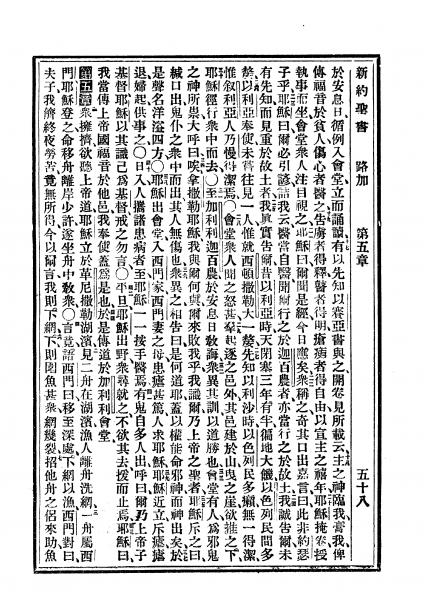 新約聖書　路加　第五章　五十八
於安息日、循例入會堂、立而誦讀、有以先知以賽亞書與之、開卷見所載云、主之神臨我、膏我、俾
傳福音於貧人、傷心者醫之、告虜者得釋、瞽者得明、瘡病者得自由、以宣主之禧年、耶穌掩卷授
執事而坐、會堂衆人注目視之、耶穌曰、爾聞是經、今日應矣、衆稱之、奇其口出嘉言、曰、此非約瑟
子乎、耶穌曰、爾必引諺語我云、醫當自醫、聞爾行之於迦百農者、亦當行之於故土、我誠告爾、未
有先知而見重於故土者、我眞實告爾、昔以利亞時、天閉塞三年有半、徧地大饑、以色列民間、多
嫠、以利亞奉使未嘗往見一人、惟就西頓撒勒大一嫠、先知以利沙時、以色列民多癩、無一得潔、
惟叙利亞人乃慢得潔焉、○會堂衆人聞之、怒甚、羣起逐之邑外、其邑建於山、曳之崖、欲推之下、
耶穌徑行衆中而去、○至加利利迦百農、於安息日敎誨、衆異其訓、以道勝也、會堂有人、爲邪鬼
之神所祟、大呼曰、唉、拿撒勒耶穌、我與爾何與、爾來敗我乎、我識爾、乃上帝之聖者、耶穌斥之曰、
緘口出、鬼仆之衆中而出其人、無傷也、衆異之、相告曰、是何道耶、蓋以權能命邪神而神出矣、於
是聲名洋溢四方、○耶穌出會堂、入西門家、西門妻之母患瘧甚、人爲求耶穌、耶穌近立、斥瘧、瘧
退、婦起供事之、○日入、人攜諸患病者至、耶穌一一按手醫焉、有鬼自多人出、呼曰、爾乃上帝子
基督、耶穌以其識己爲基督、戒之勿言、○平旦、耶穌出野、衆尋就之、不欲其去、援而止焉、耶穌曰、
我當傳上帝國福音於他邑、我奉使蓋爲是也、於是傳道於加利利會堂
第五章 衆擁擠、欲聽上帝道、耶穌立於革尼撒勒湖濱、見二舟在湖濱、漁人離舟洗網、一舟屬西
門、耶穌登之、命移舟離岸少許、遂坐舟中敎衆、○言竟、語西門曰、移至深處、下網以漁、西門對曰、
夫子、我儕終夜勞苦、竟無所得、今以爾言、我則下網、下則圍魚甚衆、網幾裂、招他舟之侶來助、魚